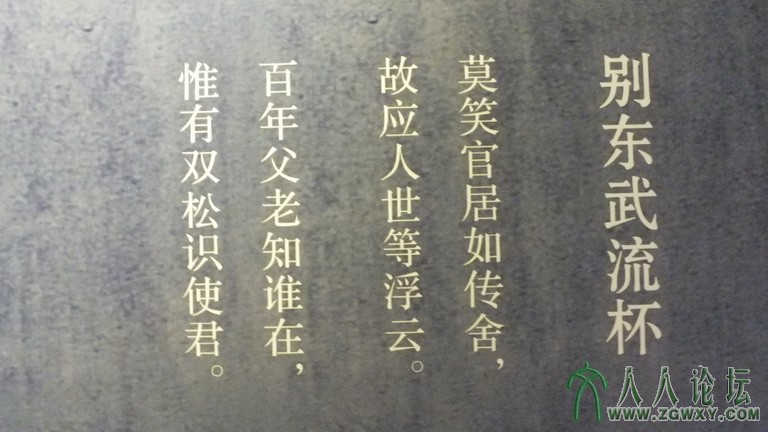 别东武流杯
莫笑官居如传舍，
故应人世等浮云。
百年父老知谁在，
惟有双松识使君。
人人论坛
www.zgwxy.com